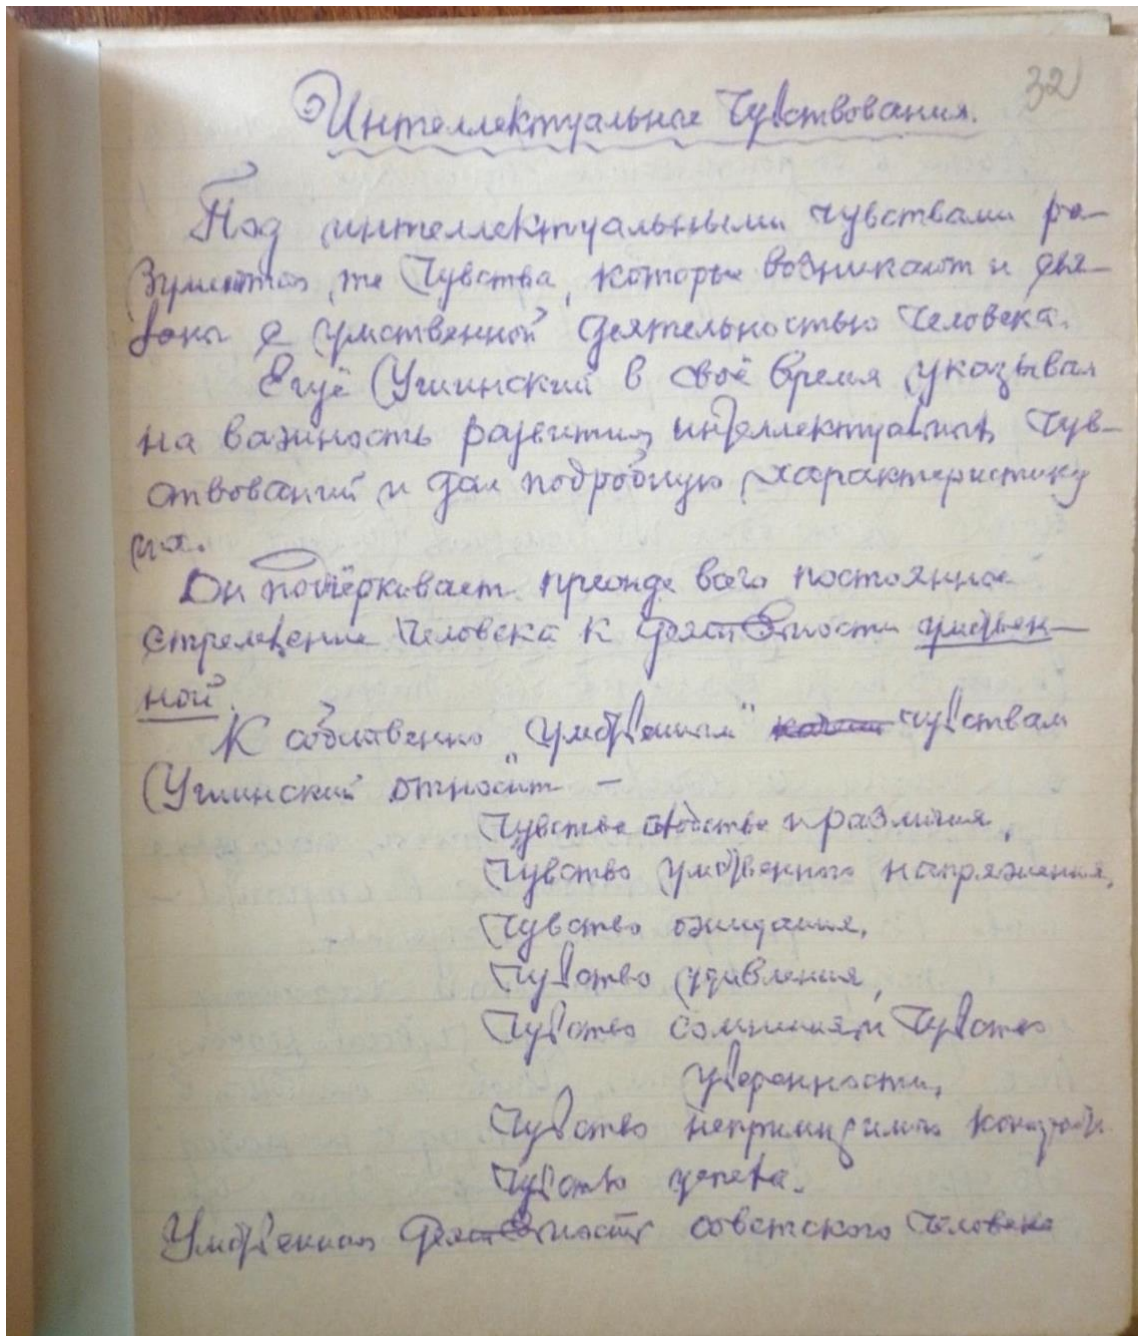 32
Интеллектуальные Чувствования.
Под интеллектуальными чувствами ра-
зумеются те Чувства, которые возникают и свя-
заны с умственной деятельностью Человека.
Ещё Ушинский в своё время указывал
на важность развития интеллектуальных Чув-
ствований и дал подробную характеристику
их.
Он подчёркивает прежде всего постоянное
стремление Человека к деятельности умствен-
ной.
К собственно "умственным" чувствам
Ушинский относит –
Чувство сходства и различия,
Чувство умственного напряжения,
Чувство ожидания,
Чувство удивления,
Чувство сомнения и Чувство
уверенности,
Чувство непримиримого контраста
Чувство успеха.
Умственная деятельность советского Человека